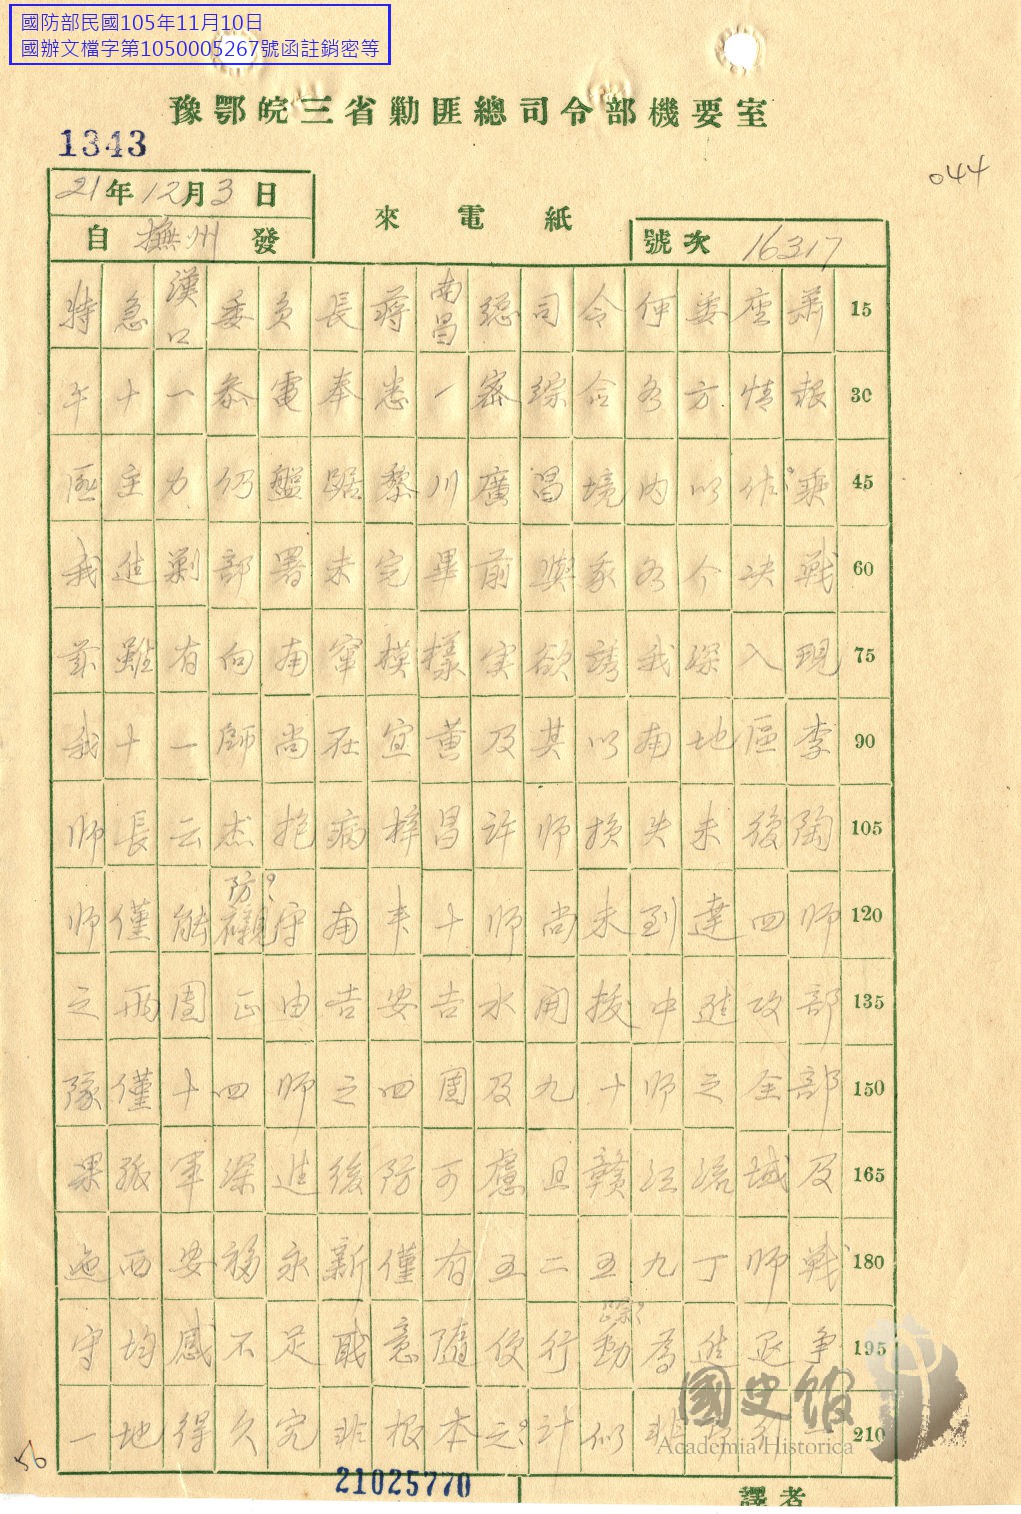 國防部民國105年11月10日
國辦文檔字第1050005267號函註銷密等
豫鄂皖三省勦匪總司令部機要室
1343
044
21年12月3日
來電紙
自撫州發
號次 16317
特急漢口委員長蔣南昌總司令何婁座蕭 15
午十一參電奉悉一密綜合各方情報 30
匪主力仍盤踞黎川廣昌境內以作?乘 45
我進剿部署未完畢前與我各个決戰 60
雖有向南竄模樣実欲誘我深入現 75
我十一師尚在宜黄及其以南地區李 90
師長云杰抱病梓昌許師損失未復陶 105
防?
師僅能襯守南丰十師尚未到達四師 120
之兩團正由吉安吉水開拔中進攻部 135
隊僅十四師之四團及九十師之全部 150
果孤軍深進後防可慮且贛江流域及 165
迤西安福永新僅有五二五九丁師戰 180
踪?
守均感不足職意隨便行動為進退争 195
一地得久完非根本之?計似非 210
國史館
Academia Historica
56
21025770
譯者